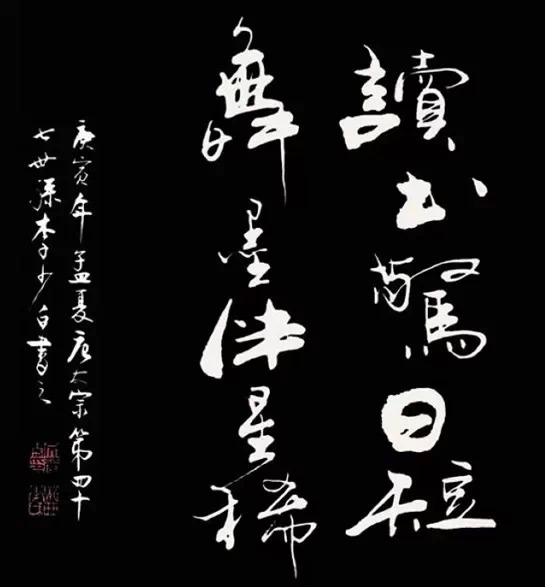 讀书驚日短
舞墨伴星稀
庚寅年孟夏唐太宗第四十
七世孫李少白書之